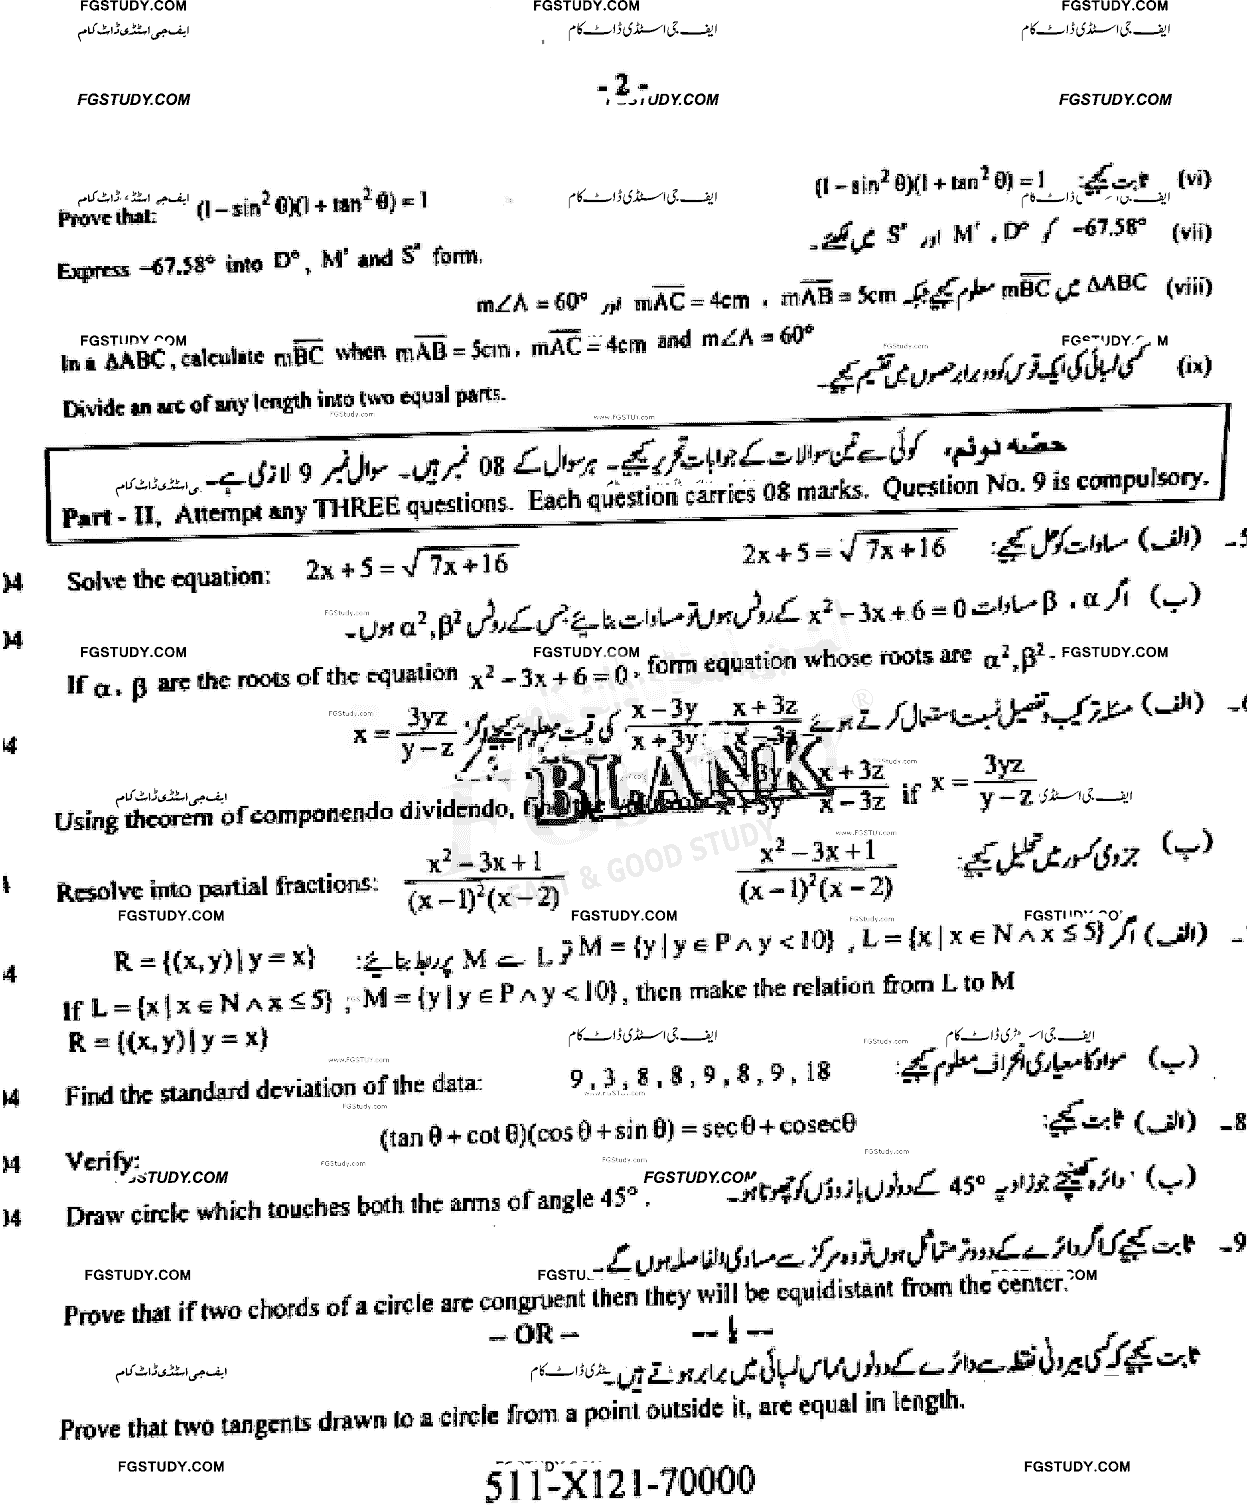 FGSTUDY.COM FGSTUDY.COM FGSTUDY.COM
ایف جی اسٹڈی ڈاٹ کام ایف جی اسٹڈی ڈاٹ کام ایف جی اسٹڈی ڈاٹ کام
- 2 -
FGSTUDY.COM FGSTUDY.COM
(vi) ثابت کیجئے: (1 – sin² θ)(1 + tan² θ) = 1
Prove that: (1 – sin² θ)(1 + tan² θ) = 1
(vii) –67.58° کو D° ، M′ اور S″ میں لکھئے۔
Express –67.58° into D°, M′ and S″ form.
(viii) ΔABC میں mBC معلوم کیجئے جبکہ mAB = 5cm ، mAC = 4cm اور m∠A = 60°
In a ΔABC, calculate mBC when mAB = 5cm, mAC = 4cm and m∠A = 60°
(ix) کسی لمبائی کی ایک قوس کو دو برابر حصوں میں تقسیم کیجئے۔
Divide an arc of any length into two equal parts.
حصہ دوئم، کوئی سے تین سوالات کے جوابات تحریر کیجئے۔ ہر سوال کے 08 نمبر ہیں۔ سوال نمبر 9 لازمی ہے۔
Part - II, Attempt any THREE questions. Each question carries 08 marks. Question No. 9 is compulsory.
5- (الف) مساوات کو حل کیجئے: 2x + 5 = √(7x + 16)
04 Solve the equation: 2x + 5 = √(7x + 16)
(ب) اگر α ، β مساوات x² – 3x + 6 = 0 کے روٹس ہوں تو مساوات بنائیے جس کے روٹس α², β² ہوں۔
04 If α, β are the roots of the equation x² – 3x + 6 = 0, form equation whose roots are α², β².
FGSTUDY.COM FGSTUDY.COM FGSTUDY.COM
6- (الف) مسئلہ ترکیب و تفصیل نسبت استعمال کرتے ہوئے (x – 3y)/(x + 3y) – (x + 3z)/(x – 3z) کی قیمت معلوم کیجئے اگر x = 3yz/(y – z)
BLANK
Using theorem of componendo dividendo, find the (x + 3z)/(x – 3z) if x = 3yz/(y – z)
FAST & GOOD STUDY
(ب) جزوی کسور میں تحلیل کیجئے: (x² – 3x + 1)/((x – 1)²(x – 2))
Resolve into partial fractions: (x² – 3x + 1)/((x – 1)²(x – 2))
FGSTUDY.COM FGSTUDY.COM
(الف) اگر L = {x | x ∈ N ∧ x ≤ 5} , M = {y | y ∈ P ∧ y < 10} تو L سے M پر ربط بنائیے: R = {(x, y) | y = x}
04 If L = {x | x ∈ N ∧ x ≤ 5} , M = {y | y ∈ P ∧ y < 10}, then make the relation from L to M
R = {(x, y) | y = x}
(ب) مواد کا معیاری انحراف معلوم کیجئے:
04 Find the standard deviation of the data: 9 , 3 , 8 , 8 , 9 , 8 , 9 , 18
8- (الف) ثابت کیجئے:
04 Verify: (tan θ + cot θ)(cos θ + sin θ) = sec θ + cosec θ
FGSTUDY.COM FGSTUDY.COM
(ب) دائرہ کھینچئے جو زاویہ 45° کے دونوں بازوؤں کو چھوتا ہو۔
04 Draw circle which touches both the arms of angle 45°.
9- ثابت کیجئے کہ اگر دائرے کے دو وتر متماثل ہوں تو وہ مرکز سے مساوی الفاصلہ ہوں گے۔
FGSTUDY.COM
Prove that if two chords of a circle are congruent then they will be equidistant from the center.
– OR –
ثابت کیجئے کہ کسی بیرونی نقطہ سے دائرے کے دونوں مماس لمبائی میں برابر ہوتے ہیں۔
Prove that two tangents drawn to a circle from a point outside it, are equal in length.
FGSTUDY.COM FGSTUDY.COM
511-X121-70000